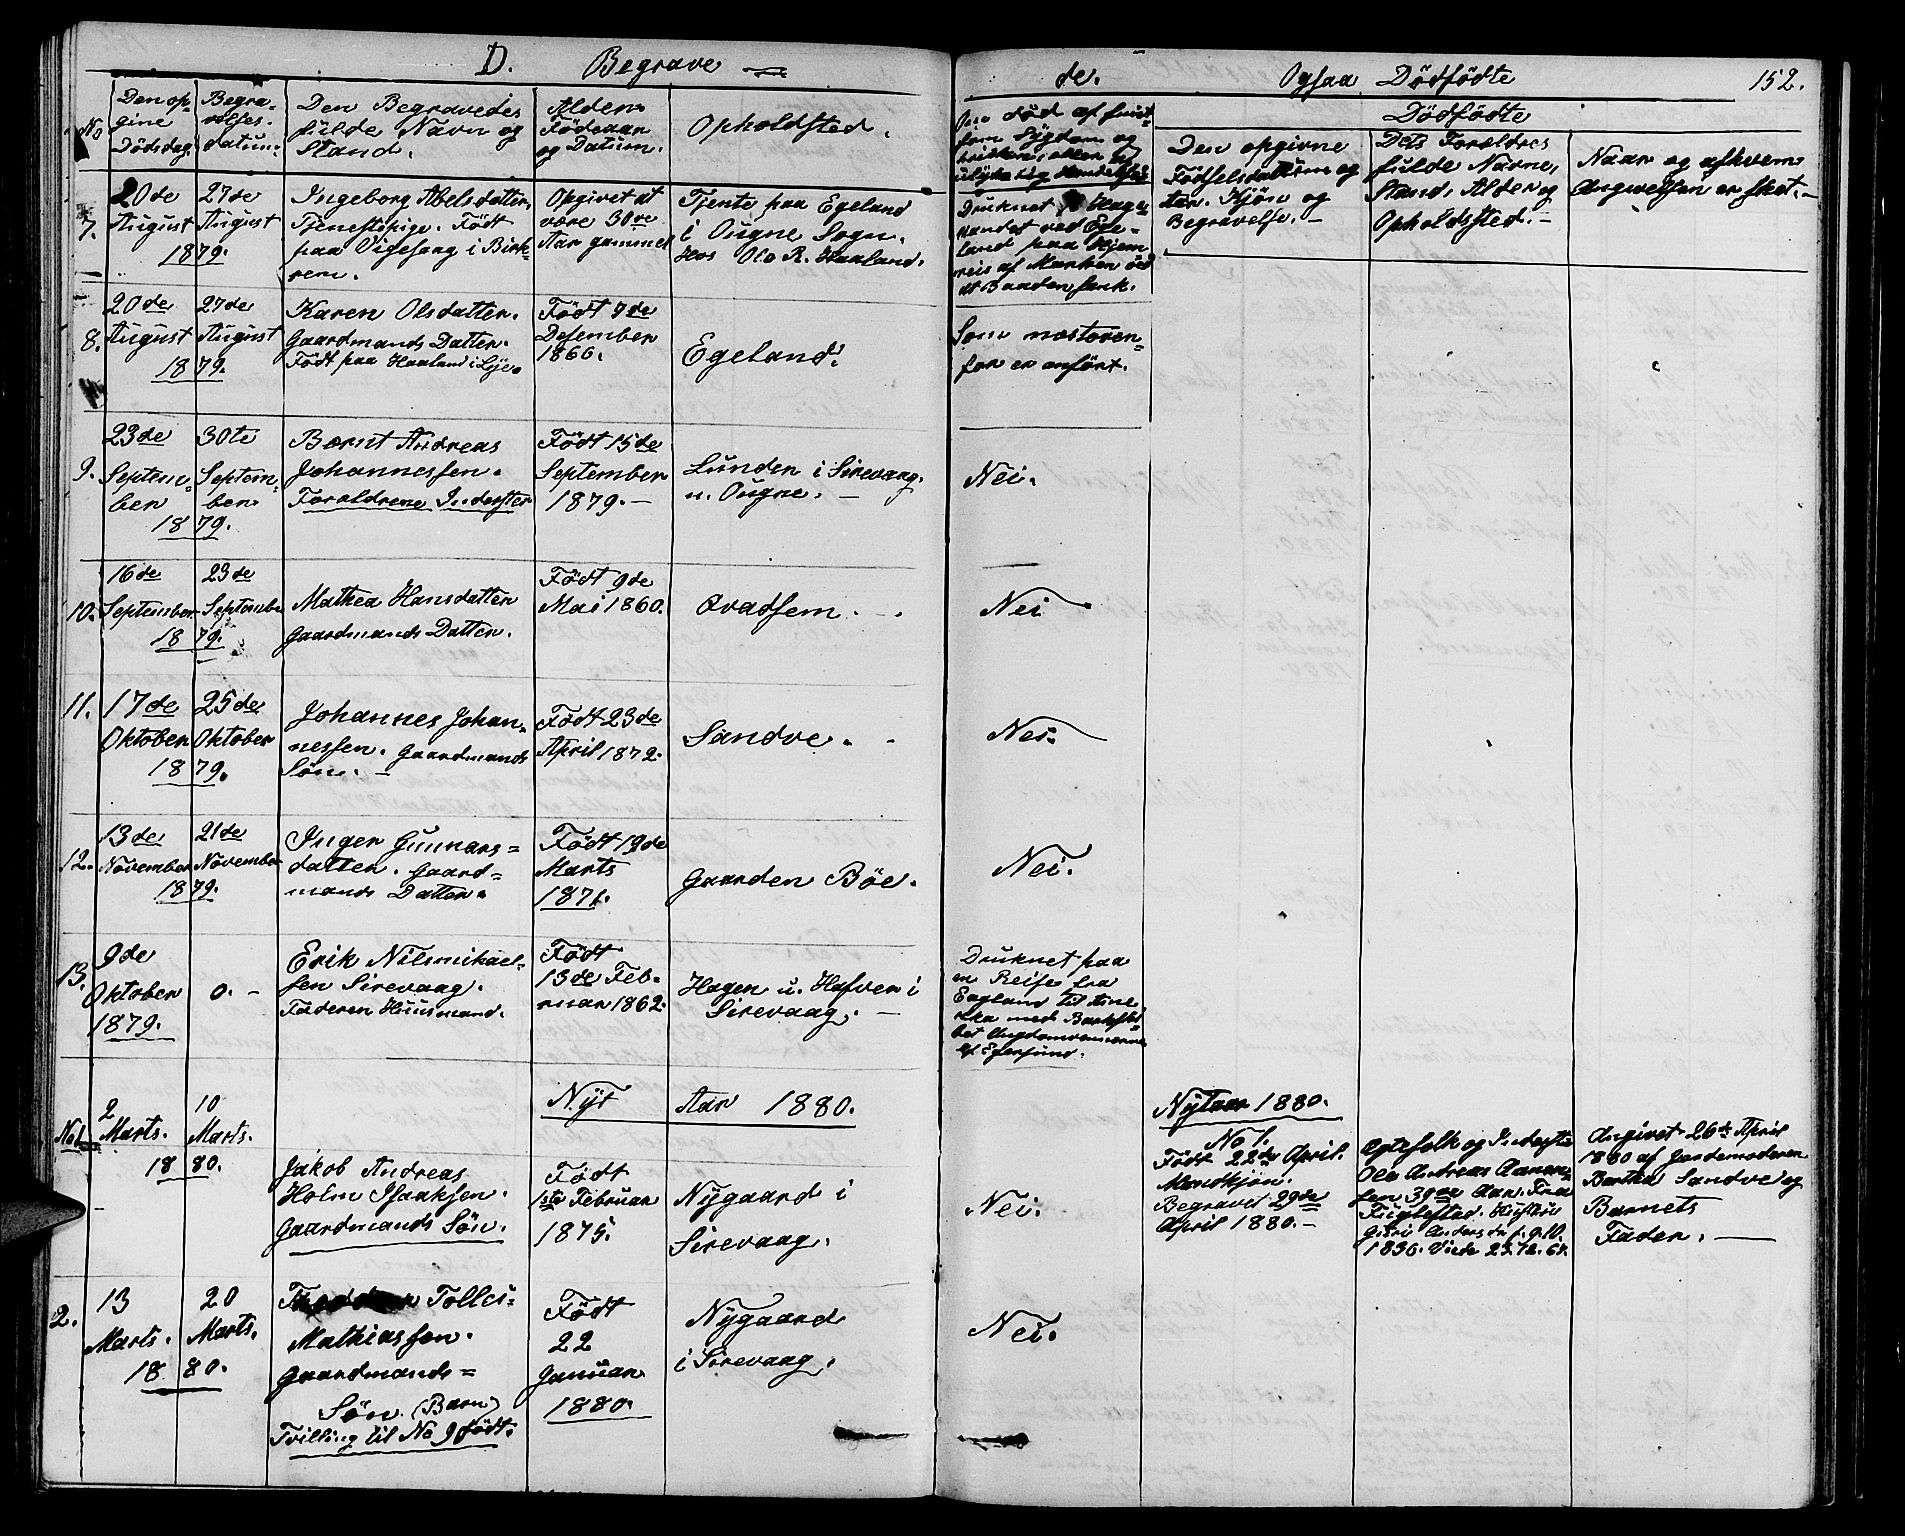 D. Begrave
de. Ogsaa Dödfödte 152.
No
Den op-
givne
Dödsdag.
Begra-
velses-
datum.
Den Begravedes
fulde Navn og
Stand.
Alder
Födeaar
og Datum.
Opholdsted.
död af
som Sygdom og
Dödfödte
Den opgivne
Födselsdatum og
Kjön og
Begravelse. -
Dets Foræeldres
fulde Navne,
Stand, Alder og
Opholdsted. -
Naar og afhvem
Angivelsen er sket. -
7.
20de
August
1879.
27de
August
Ingeborg Abelsdatter,
Tjenestepige. Född
paa Vigesaag i Birk-
rem.
Opgivet at
være 30ve
Aar gammel
Tjente paa Egeland
i Ougne Sogn.
Hos Ole R. Haaland.
Druknet
vandet ved Ege-
land paa Hjem
reis af Marken
at Baaden sank.
8.
20de
August
1879.
27de
August
Karen Olsdatter.
Gaardmands Datter.
Födt paa Haaland i Lye.
Födt 7de
Desember
1866.
Egeland.
Som næstoven-
for er anfört.
9.
23de
Septem-
ber
1879.
30te
Septem-
ber
Bernt Andreas
Johannessen.
Foræeldrene Inderster
Födt 15de
September
1879. -
Lunden i Sirevaag.
u. Ougne. -
Nei.
10.
16de
September
1879.
23de
Septembe
Mathea Hansdatter
Gaardmands Datter.
Födt 9de
Mai 1860.
Qvadsem.
Nei
11.
17de
Oktober
1879.
25de
Oktober
Johannes Johan-
nessen. Gaardmands
Sön. -
Födt 23de
April 1872.
Sandve.
Nei.
12.
13de
November
1879.
21de
November
Inger Gunnars-
datter. Gaard-
mands Datter.
Födt 19de
Marts
1871.
Gaarden Böe.
Nei.
13.
9de
Oktober
1879.
0. -
Erik Nilsmikael-
sen Sirevaag.
Faderen Huusmand.
Födt
13de Feb-
ruar 1862.
Hagen u. Hafven i
Sirevaag. -
Druknet paa
en Reise fra
England til Ame
rika med
af Egersund.
Nyt Aar 1880.
No 1.
2
Marts.
1880.
10
Marts.
Jakob Andreas
Holm Isaaksen.
Gaardmands Sön.
Födt
1ste Februar
1875.
Nygaard i
Sirevaag.
Nei.
Nytaar 1880.
No 1.
Födt 22de April.
Mandkjön.
Begravet 29de
April 1880. -
Egtefolk og Inderste
Ole Andreas Aanen-
sen 39ve Aar. Fra
Fuglestad. Hustru
Guri Andersdr f. 9.10.
1836. Viede 23.12.61.
Angivet 26de April
1880 af Jordemoderen
Bertha Sandve og
Barnets
Fader. -
2.
13
Marts.
1880.
20
Marts.
Tollei-
Mathiassen.
Gaardmands-
Sön. (Barn)
Tvilling til No 9 födt.
Födt
22
Januar
1880.
Nygaard
i Sirevaag.
Nei.